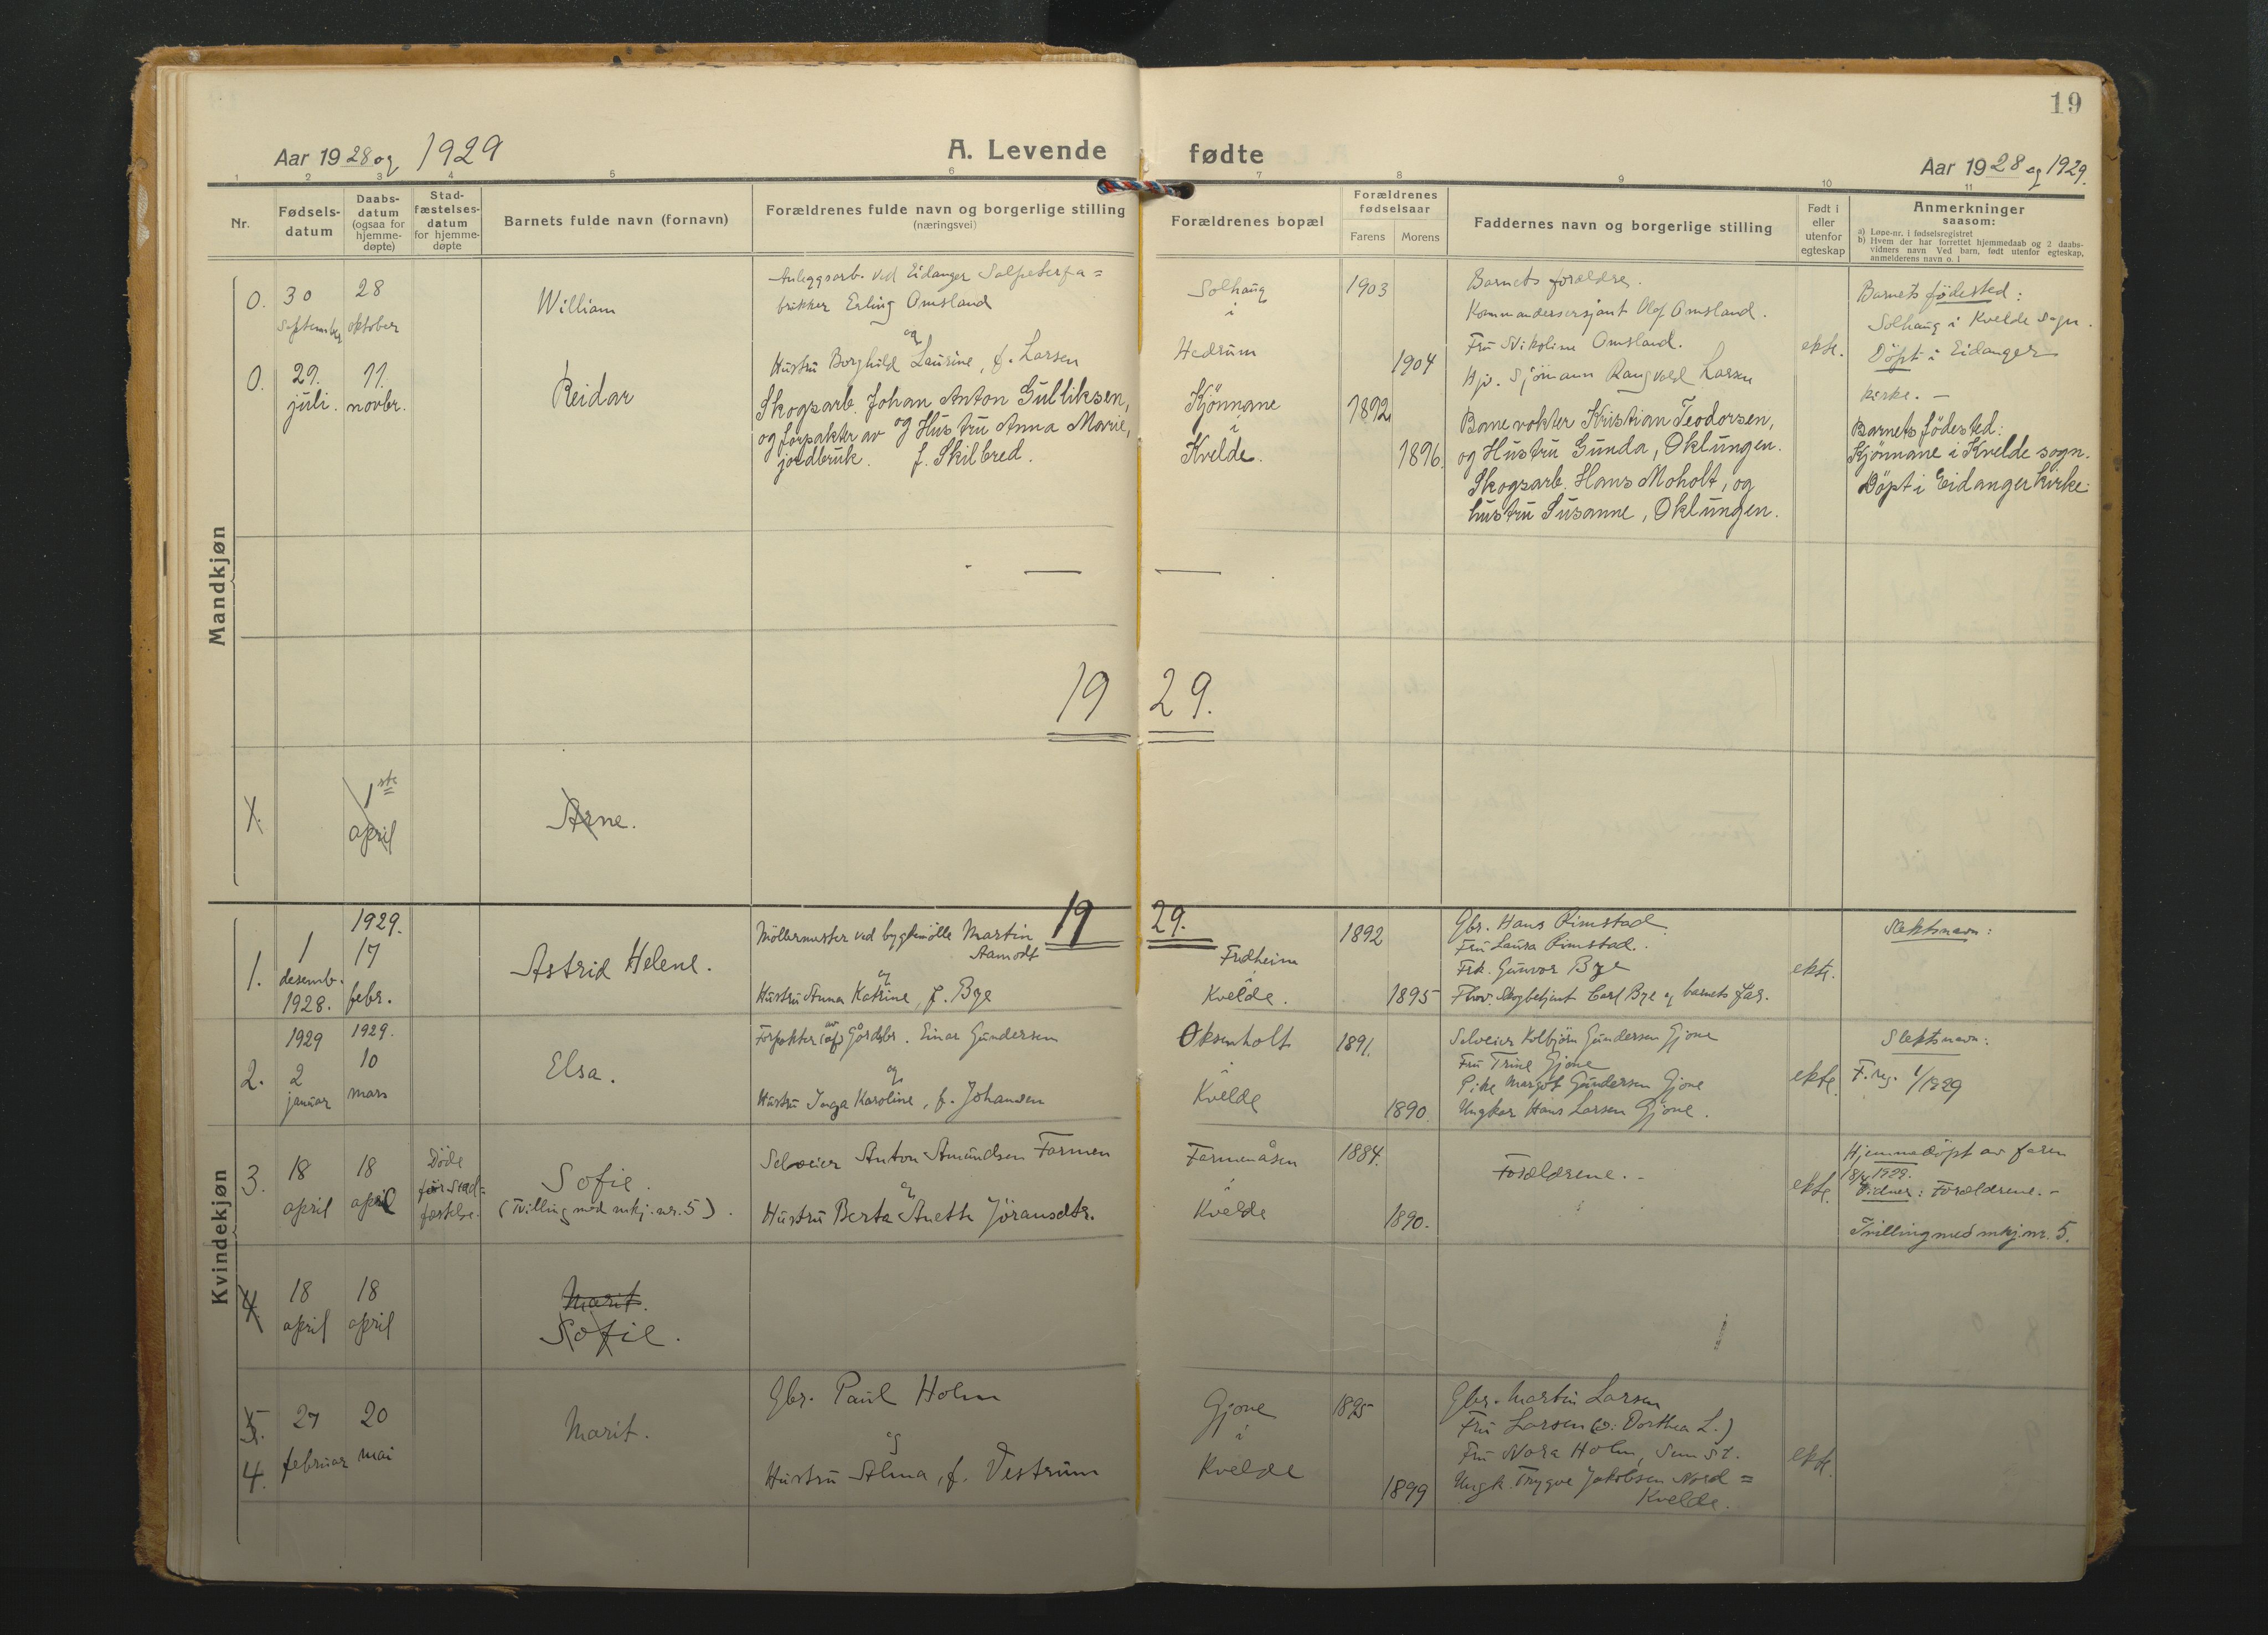 19
Aar 1928 og 1929
A. Levende fødte
Aar 1928 og 1929.
1 2 3 4 5 6 7 8 9 10 11
Nr.
Fødsels-
datum
Daabs-
datum
(ogsaa for
hjemme-
døpte)
Stad-
fæstelses-
datum
for hjemme-
døpte
Barnets fulde navn (fornavn)
Forældrenes fulde navn og borgerlige stilling
(næringsvei)
Forældrenes bopæl
Forældrenes
fødselsaar
Farens Morens
Faddernes navn og borgerlige stilling
Født i
eller
utenfor
egteskap
Anmerkninger
saasom:
a) Løpe-nr. i fødselsregistret
b) Hvem der har forrettet hjemmedaab og 2 daabs-
vidners navn Ved barn, født utenfor egteskap,
anmelderens navn o. l
Mandkjøn
0.
30
september
28
oktober
William
Anleggsarb. ved Eidanger Salpeterfa=
brikker Erling Omsland
og
Hustru Borghild Laurine, f. Larsen
Solhaug
i
Hedrum
1903
1904
Barnets forældre.
Kommandersersjant Olaf Omsland.
Fru Nikoline Omsland.
Hjv. Sjömann Rangvald Larsen
ekte.
Barnets födested:
Solhaug i Kvelde sogn.
Döpt i Eidanger
kirke. —
0.
29.
juli.
11.
novbr.
Reidar
Skogsarb. Johan Anton Gulliksen,
og forpakter av og Hustru Anna Marie,
jordbruk. f. Skilbred.
Kjönnane
i
Kvelde.
1892
1896.
Banevokter Kristian Teodorsen,
og Hustru Gunda, Oklungen.
Skogsarb. Hans Moholt, og
hustru Susanne, Oklungen.
Barnets födested:
Kjönnane i Kvelde sogn.
Döpt i Eidanger kirke.
19 29.
X.
1ste
april
Arne.
Kvindekjøn
19 29.
1.
1
desemb.
1928.
1929.
17
febr.
Astrid Helene.
Möllermester ved bygdemölle Martin
Aamodt
og
Hustru Anna Katrine, f. Bye
Fredheim
i
Kvelde.
1892
1895
Gbr. Hans Rimstad.
Fru Laura Rimstad.
Frk. Gunvor Bye
Fhv. Skogbetjent Carl Bye og barnets far.
ekte.
Slektsnavn:
2.
1929
2
januar
1929.
10
mars
Elsa.
Forpakter (af) av Gårdbr. Einar Gundersen
og
Hustru Inga Karoline, f. Johansen
Oksenholt
i
Kvelde
1891.
1890.
Selveier Kolbjörn Gundersen Gjone
Fru Trine Gjone
Pike Margot Gundersen Gjone
Ungkar Hans Larsen Gjone.
ekte.
Slektsnavn:
F. reg. 1/1929
3.
18
april
18
april
Döde
för stad=
festelse.
Sofie.
(Tvilling med mkj. nr. 5).
Selveier Anton Amundsen Farmen
og
Hustru Berta Anette Jöransdtr.
Farmenåsen
i
Kvelde
1884.
1890.
Forældrene. -
ekte.
Hjemmedöpt av faren
18/4 1929.
Vidner: Forældrene. -
Tvilling med mkj. nr. 5.
4.
18
april
18
april
Marit.
Sofie.
5.
4.
27
februar
20
mai
Marit.
Gbr. Paul Holm
og
Hustru Alma, f. Vestrum
Gjone
i
Kvelde
1895
1899
Gbr. Martin Larsen
Fru Larsen (ɔ: Dorthea L.)
Fru Nora Holm,
Ungk. Trygve Jakobsen Nord=
Kvelde.
ekte.